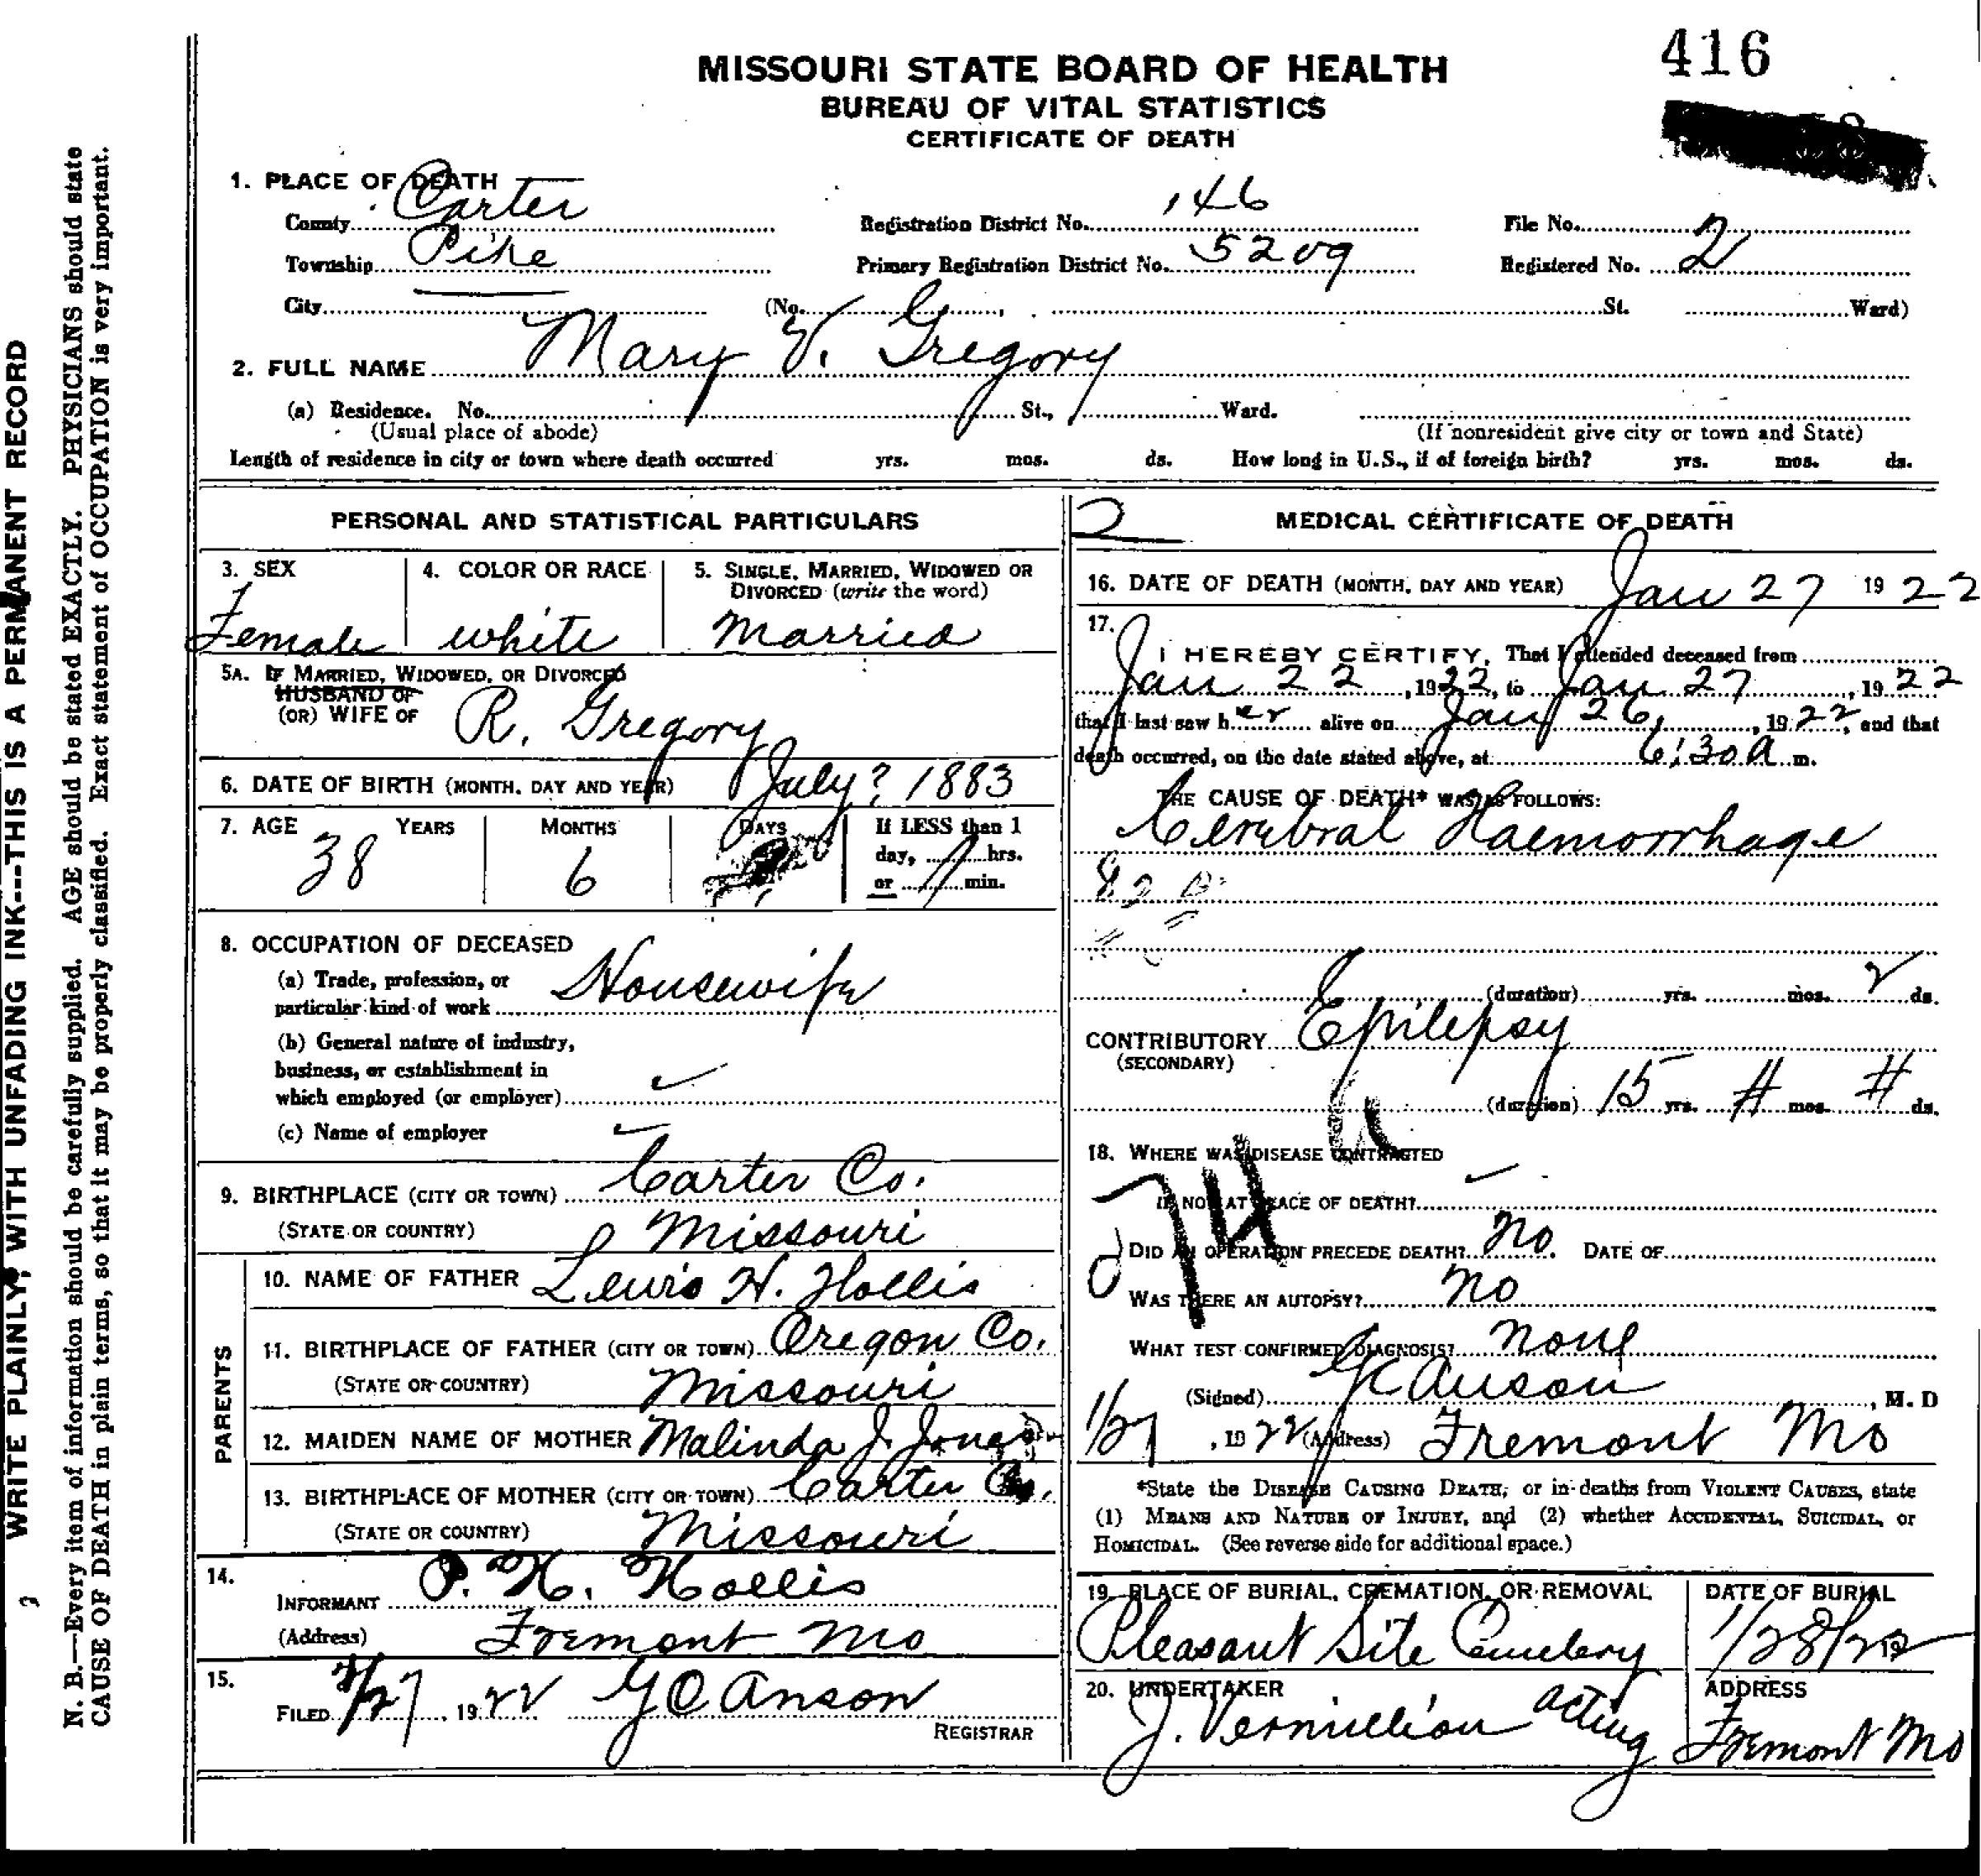 416
MISSOURI STATE BOARD OF HEALTH
BUREAU OF VITAL STATISTICS
CERTIFICATE OF DEATH
1. PLACE OF DEATH
County Carter Registration District No. 146 File No.
Township Pike Primary Registration District No. 5209 Registered No. 2
City (No. , St. Ward)
2. FULL NAME Mary V. Gregory
(a) Residence. No. St., Ward.
(Usual place of abode) (If nonresident give city or town and State)
Length of residence in city or town where death occurred yrs. mos. ds. How long in U.S., if of foreign birth? yrs. mos. ds.
PERSONAL AND STATISTICAL PARTICULARS
3. SEX 4. COLOR OR RACE 5. SINGLE, MARRIED, WIDOWED OR
DIVORCED (write the word)
Female white Married
5A. IF MARRIED, WIDOWED, OR DIVORCED
HUSBAND OF
(OR) WIFE OF R. Gregory
6. DATE OF BIRTH (MONTH, DAY AND YEAR) July ? 1883
7. AGE YEARS MONTHS DAYS If LESS than 1
day, hrs.
or min.
38 6
8. OCCUPATION OF DECEASED
(a) Trade, profession, or
particular kind of work Housewife
(b) General nature of industry,
business, or establishment in
which employed (or employer)
(c) Name of employer
9. BIRTHPLACE (CITY OR TOWN) Carter Co.
(STATE OR COUNTRY) Missouri
PARENTS
10. NAME OF FATHER Lewis H. Hollis
11. BIRTHPLACE OF FATHER (CITY OR TOWN) Oregon Co.
(STATE OR COUNTRY) Missouri
12. MAIDEN NAME OF MOTHER Malinda J. Jones
13. BIRTHPLACE OF MOTHER (CITY OR TOWN) Carter Co.
(STATE OR COUNTRY) Missouri
14.
INFORMANT P. H. Hollis
(Address) Fremont Mo
15.
FILED 1/27, 1922 G C Anson
REGISTRAR
2
MEDICAL CERTIFICATE OF DEATH
16. DATE OF DEATH (MONTH, DAY AND YEAR) Jan 27 1922
17.
I HEREBY CERTIFY, That I attended deceased from
Jan 22, 1922, to Jan 27, 1922
that I last saw her alive on Jan 26, 1922, and that
death occurred, on the date stated above, at 6:30 a m.
THE CAUSE OF DEATH* WAS AS FOLLOWS:
Cerebral Haemorrhage
(duration) yrs. mos. 2 ds.
CONTRIBUTORY Epilepsy
(SECONDARY)
(duration) 15 yrs. # mos. # ds.
18. WHERE WAS DISEASE CONTRACTED
IF NOT AT PLACE OF DEATH?
DID AN OPERATION PRECEDE DEATH? No. DATE OF
WAS THERE AN AUTOPSY? No
WHAT TEST CONFIRMED DIAGNOSIS? None
(Signed) G C Anson, M. D
1/27, 1922 (Address) Fremont Mo
74
*State the DISEASE CAUSING DEATH, or in deaths from VIOLENT CAUSES, state
(1) MEANS AND NATURE OF INJURY, and (2) whether ACCIDENTAL, SUICIDAL, or
HOMICIDAL. (See reverse side for additional space.)
19. PLACE OF BURIAL, CREMATION, OR REMOVAL DATE OF BURIAL
Pleasant Site Cemetery 1/28/22 19
20. UNDERTAKER ADDRESS
J. Vermillion acting Fremont Mo
WRITE PLAINLY, WITH UNFADING INK---THIS IS A PERMANENT RECORD
N. B.—Every item of information should be carefully supplied. AGE should be stated EXACTLY. PHYSICIANS should state
CAUSE OF DEATH in plain terms, so that it may be properly classified. Exact statement of OCCUPATION is very important.